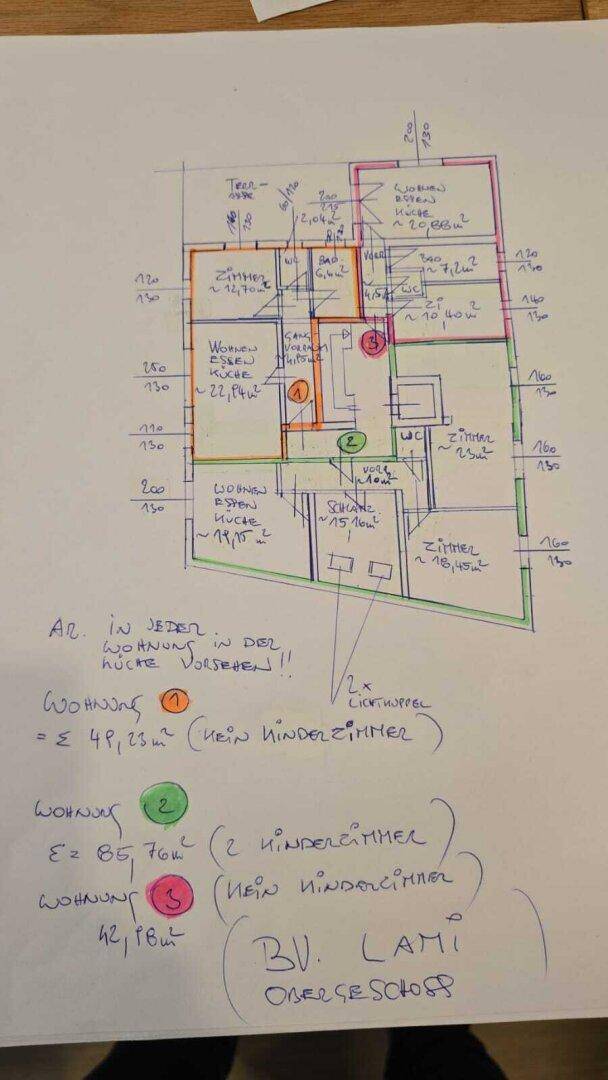 200
130
TERR-
ASSE
60/120
200
215
2,04m²
WOHNEN
ESSEN
KÜCHE
~ 20,88m²
130
WC
BAD
6,4m²
VORR
BAD
~ 7,2m²
120
130
ZIMMER
~ 12,70m²
120
130
WC
ZI
~ 10,40m²
140
130
GANG
VORRAUM
~ 4,95m²
3
WOHNEN
ESSEN
KÜCHE
~ 22,94m²
250
130
1
160
130
110
130
2
WC
ZIMMER
~ 23m²
160
130
VORR
~ 10m²
200
130
WOHNEN
ESSEN
KÜCHE
~ 19,15m²
~ 15,16m²
ZIMMER
~ 18,45m²
160
130
AR. IN JEDER
WOHNUNG IN DER
KÜCHE VORSEHEN!!
2x
LICHTKUPPEL
WOHNUNG 1
= Σ 49,23m² (KEIN KINDERZIMMER)
WOHNUNG 2
Σ = 85,76m² (2 KINDERZIMMER)
WOHNUNG 3 (KEIN KINDERZIMMER)
42,98m²
(BV. LAMI
OBERGESCHOSS)